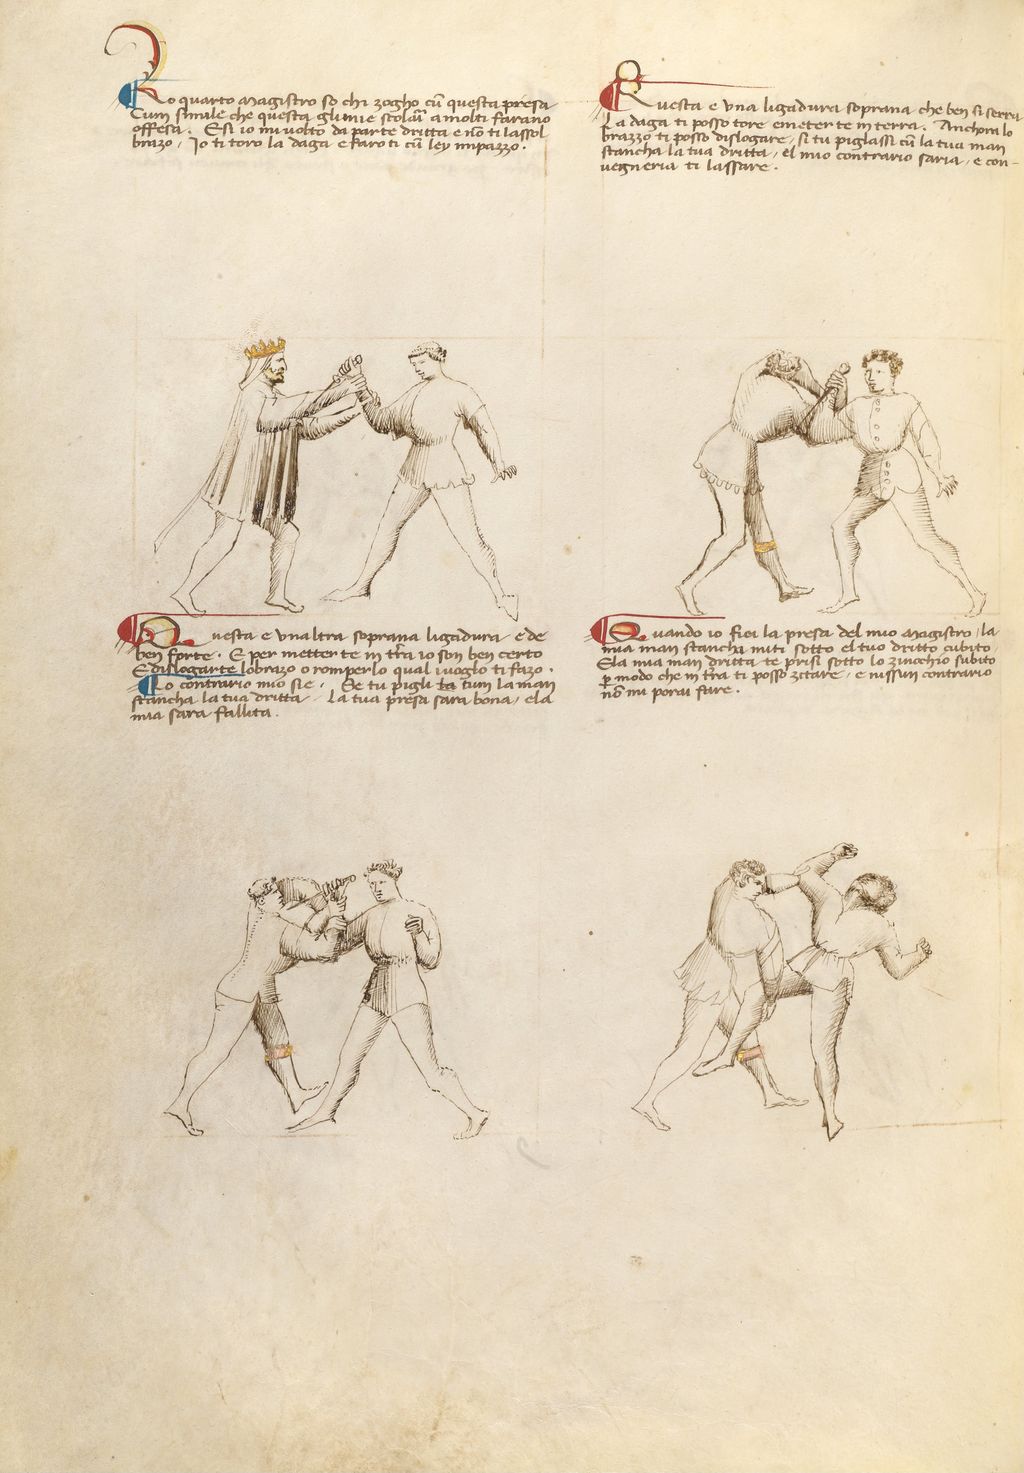 Io quarto magistro so chi zogho cũ questa presa
Cum simile che questa gli mie scolari a molti farano
offesa. E si io mi volto da parte dritta e nõ ti lassol
brazo, Io ti toro la daga e faro ti cũ ley impazzo.
Questa e una ligadura soprana che ben si serra
La daga ti posso tore e meter te in terra. Anchora lo
brazzo ti posso dislogare, si tu piglassi cũ la tua man
stancha la tua dritta, el mio contrario saria, e con-
vegneria ti lassare.
Questa e unaltra soprana ligadura e de
ben forte. E per metter te in tr̃a io son ben certo
E dislogarte lobrazo o romperlo qual i voglo ti fazo.
Lo contrario mio sie, Se tu pigli cum la man
stancha la tua dritta. La tua presa sara bona, e la
mia sara fallita.
Quando io fici la presa del mio magistro, la
mia man stancha miti sotto el tuo dritto cubito,
E la mia man dritta te prisi sotto lo zinochio subito
ꝑ modo che in tr̃a ti posso zitare, e nissun contrario
nõ mi porai fare.